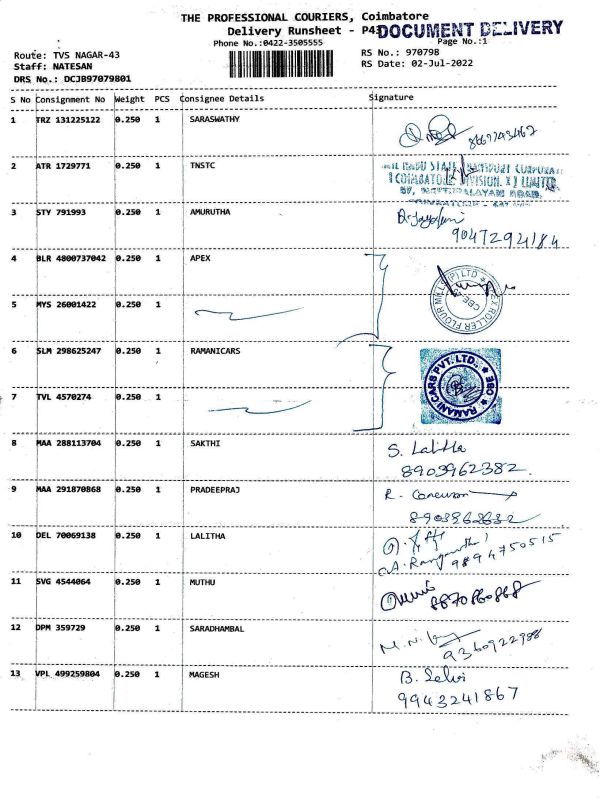 THE PROFESSIONAL COURIERS, Coimbatore
Delivery Runsheet - P43
DOCUMENT DELIVERY
Phone No.:0422-3505555
Page No.:1
Route: TVS NAGAR-43
RS No.: 970798
Staff: NATESAN
RS Date: 02-Jul-2022
DRS No.: DCJB97079801
S No Consignment No Weight PCS Consignee Details Signature
1 TRZ 131225122 0.250 1 SARASWATHY
2 ATR 1729771 0.250 1 TNSTC
3 STY 791993 0.250 1 AMURUTHA
9047294184
4 BLR 4800737042 0.250 1 APEX
5 MYS 26001422 0.250 1
6 SLM 298625247 0.250 1 RAMANICARS
RAMANI CARS PVT. LTD.
7 TVL 4570274 0.250 1
8 MAA 288113704 0.250 1 SAKTHI
S. Lalitha
8903962382
9 MAA 291870868 0.250 1 PRADEEPRAJ
10 DEL 70069138 0.250 1 LALITHA
9894750515
11 SVG 4544064 0.250 1 MUTHU
12 DPM 359729 0.250 1 SARADHAMBAL
9360922988
13 VPL 499259804 0.250 1 MAGESH
B. Selvi
9943241867